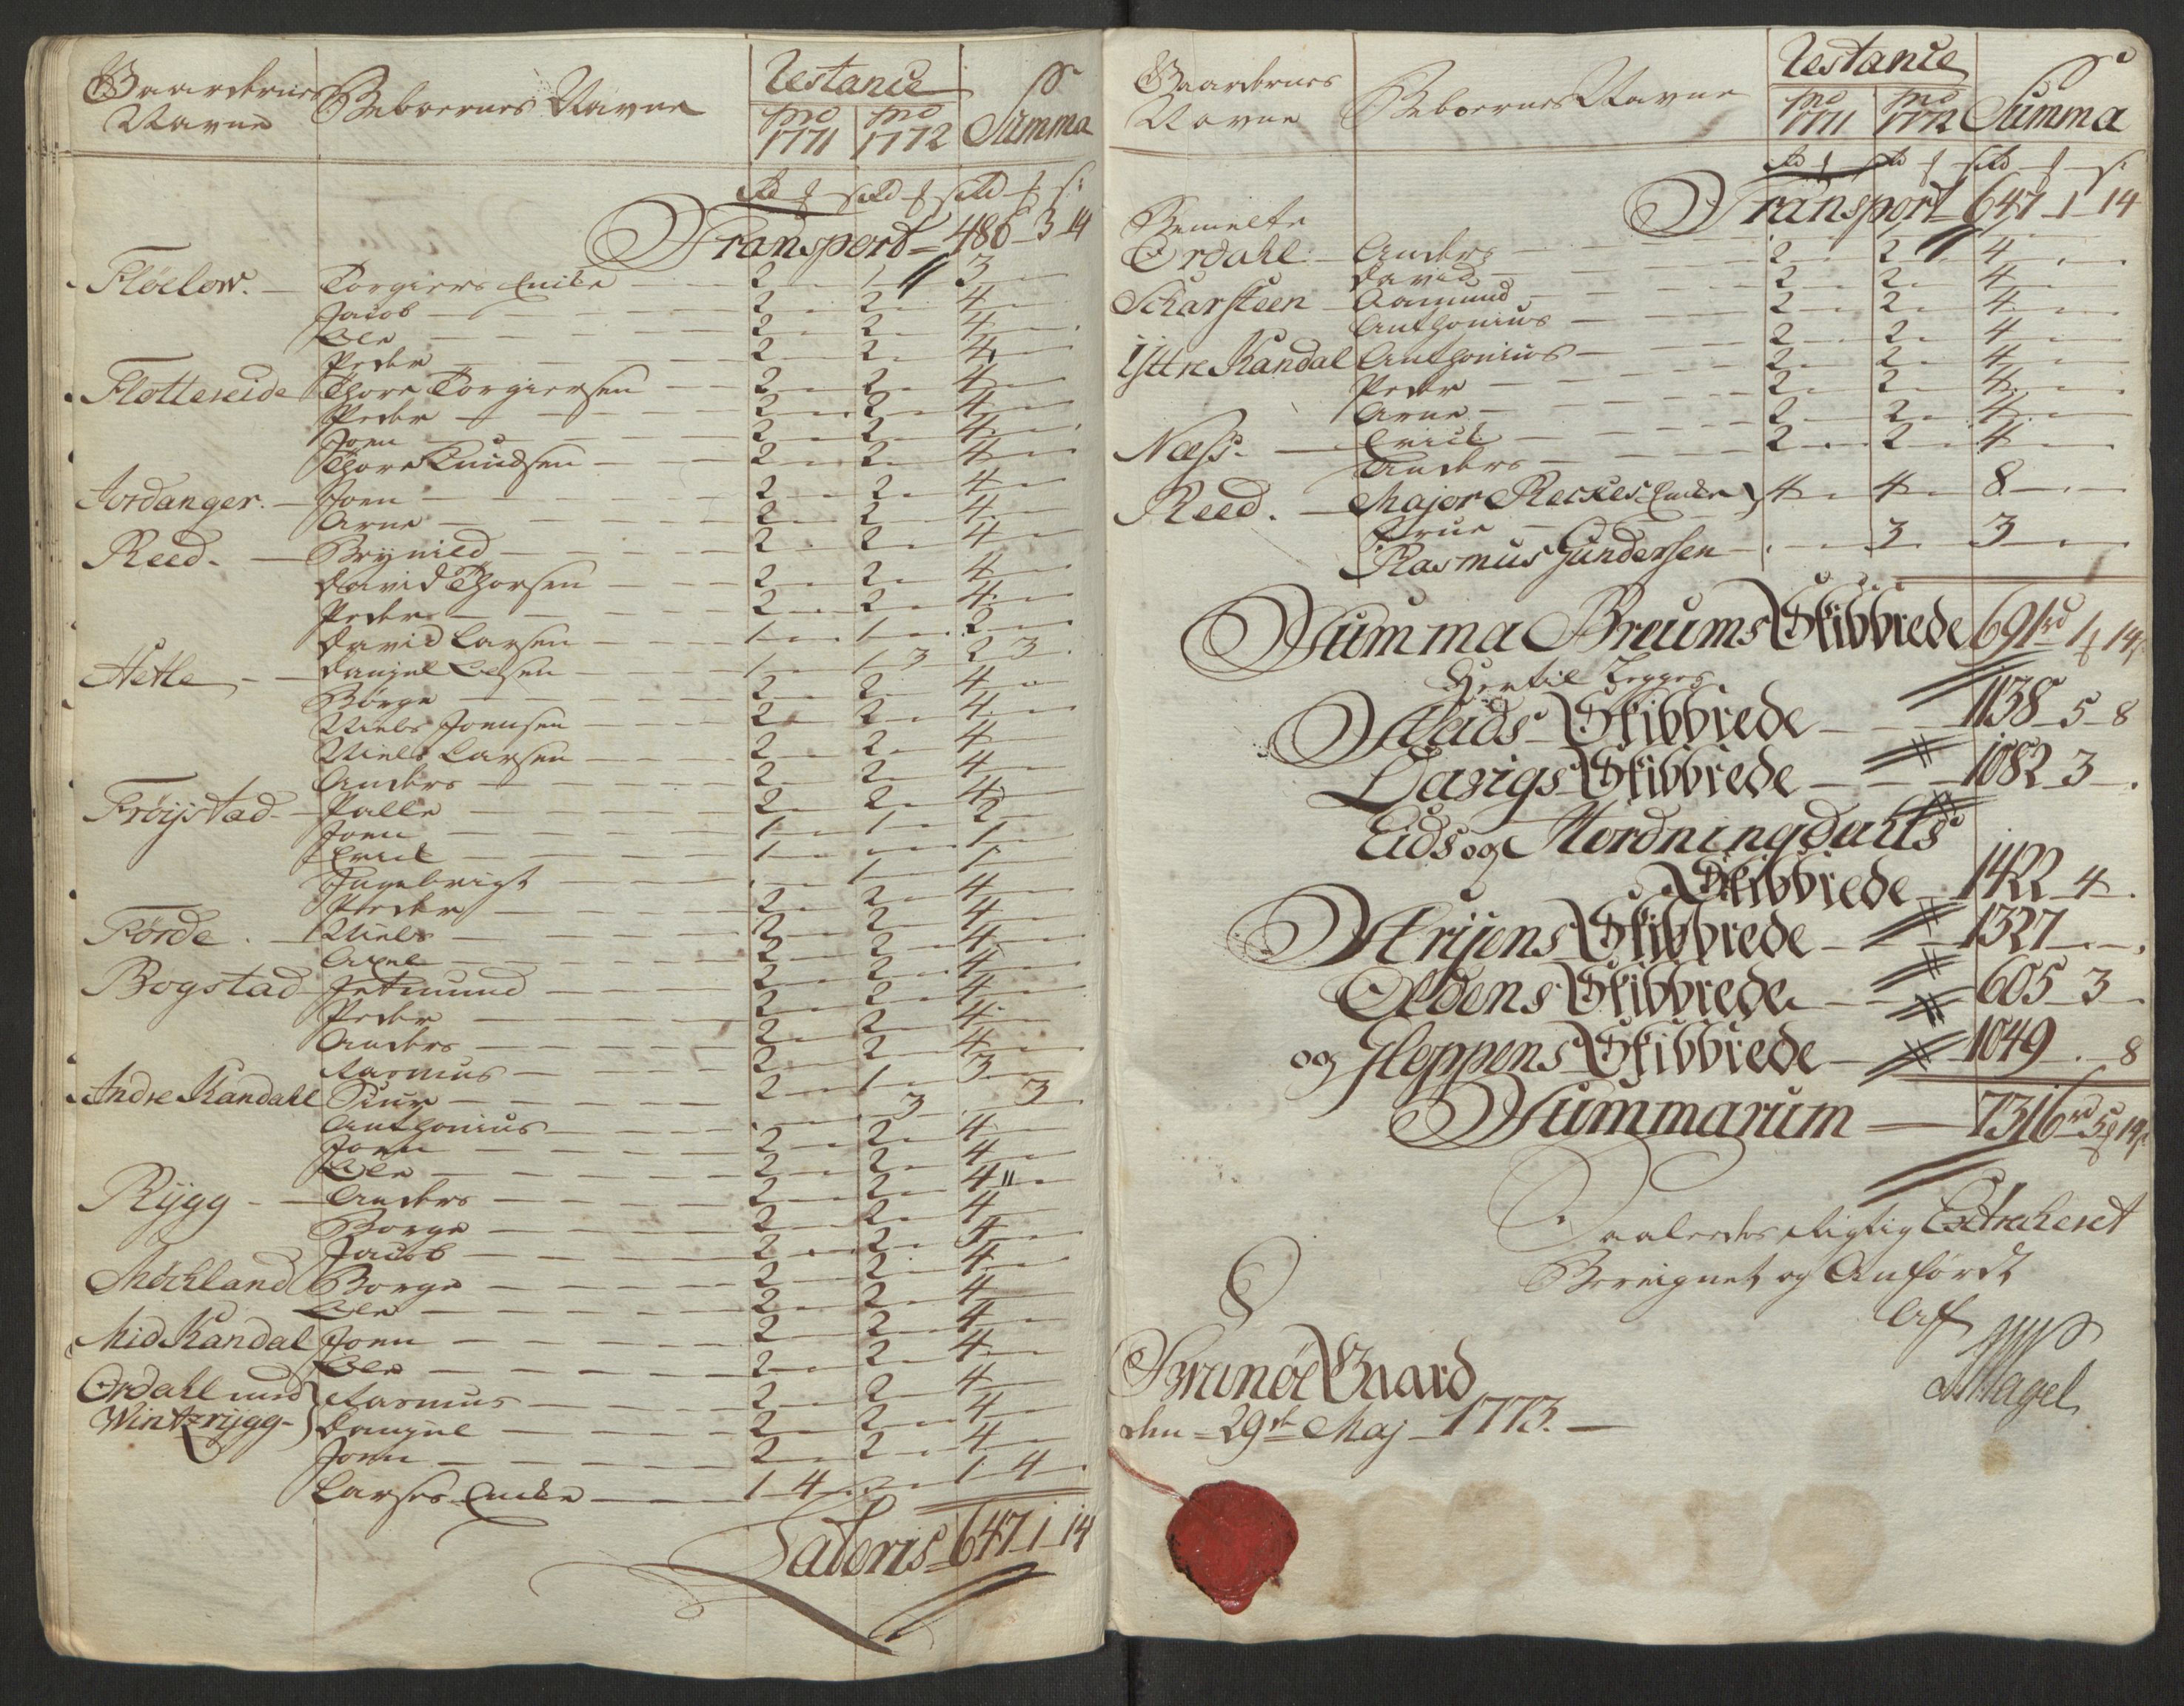 Gaardernes Navne
Beboernes Navne
Restance
pro 1771
pro 1772
Summa
Transport 486 3 14
Fløelow. Torgiers Encke 2 1 3
Jacob 2 2 4
Ole 2 2 4
Peder 2 2 4
Flotteneide Thore Torgiersen 2 2 4
Peder 2 2 4
Joen 2 2 4
Thore Knudsen 2 2 4
Jordanger. Joen 2 2 4
Arne 2 2 4
Reed. Brynild 2 2 4
David Thorsen 2 2 4
Peder 2 2 4
David Larsen 1 1 2
Hetle Daniel Olsen 1 1 3 2 3
Børge 2 2 4
Niels Joensen 2 2 4
Niels Larsen 2 2 4
Anders 2 2 4
Frøystad Palle 2 2 4
Joen 1 1 2
Erick 1 1
Ingebrigt 1 1
Peder 2 2 4
Førde. Niels 2 2 4
Axel 2 2 4
Bogstad Jetmund 2 2 4
Peder 2 2 4
Anders 2 2 4
Rasmus 2 2 4
Indre Kandahl Siur 2 1 3
Anthonius 3 3
Joen 2 2 4
Ole 2 2 4
Rÿgg Anders 2 2 4
Børge 2 2 4
Jacob 2 2 4
Møchland Børge 2 2 4
Ole 2 2 4
Mid Kandal Joen 2 2 4
Ole 2 2 4
Ordahl med Rasmus 2 2 4
Wintzrÿgg Daniel 2 2 4
Joen 2 2 4
Larses Encke 1 4 1 4
Lateris 647 1 14
Gaardernes Navne
Beboernes Navne
Restance
pro 1771
pro 1772
Summa
Transport 647 1 14
Bemelte
Ordahl Anders 2 2 4
David 2 2 4
Scharsteen Aamund 2 2 4
Anthonius 2 2 4
Yttre Kandal Anthonius 2 2 4
Peder 2 2 4
Arne 2 2 4
Næss. Erick 2 2 4
Anders
Reed. Major Reckes Encke 4 4 8
Frue
Rasmus Gundersen 3 3
Summa Breums Skibbrede 691 rd 1 14
Hertil Legges
Stads Skibbrede 1138 5 8
Davigs Skibbrede 1082 3
Eids og Hordningdahls
Skibbrede 1422 4
Strÿens Skibbrede 1327
Oldens Skibbrede 605 3
og Gloppens Skibbrede 1049 8
Summarum 7316 rd 5 14
Saaledes Rigtig Extraheret
Beregnet og Anført
Af
Nagel
Svanøe Gaard
den 29de Maj 1773.